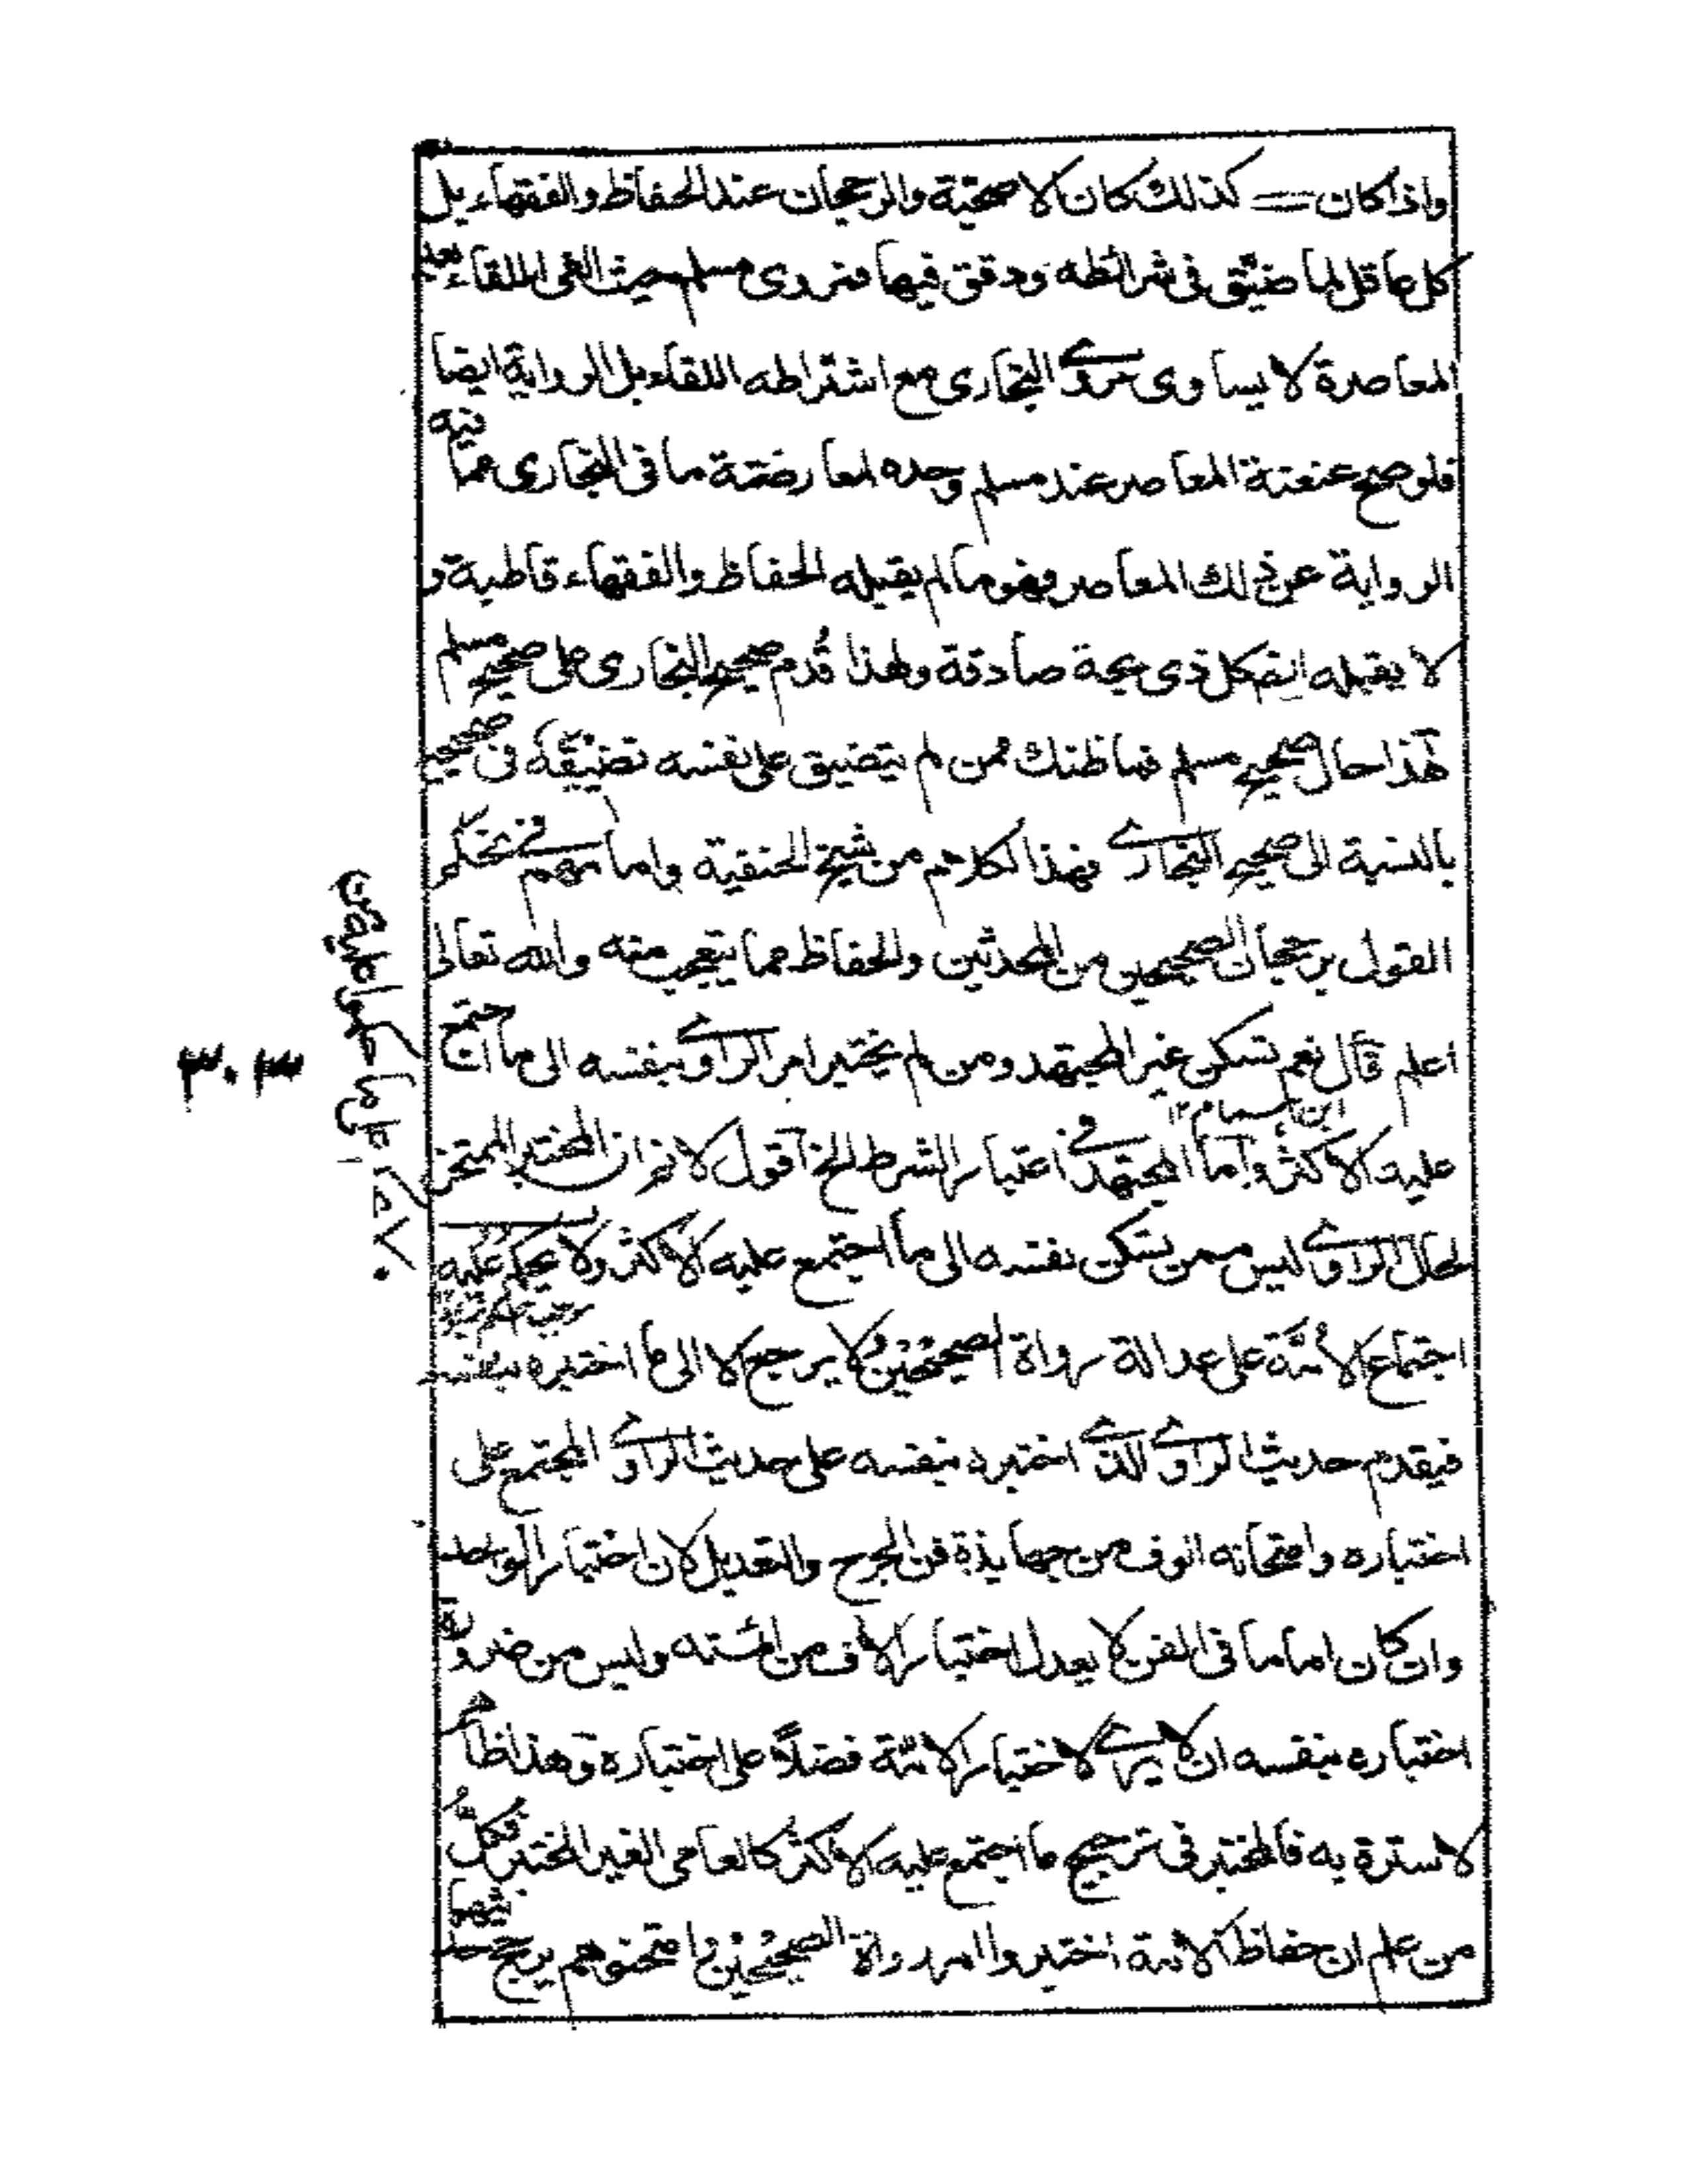 واذا كان كذلك كان الاصحية والرجحان عند الحفاظ والفقهاء بل
كل عاقل لما ضيّق فى شرائطه ودقق فيها فمروى مسلم حيث الغى اللقاء بعد
المعاصرة لا يساوى مروى البخارى مع اشتراطه اللقاء بل الرواية ايضا
فلو صح عنعنة المعاصر عند مسلم وحده لمعارضة ما فى البخارى مما فيه
الرواية عن ذلك المعاصر فهو ما لم يقبله الحفاظ والفقهاء قاطبة و
لا يقبله كل ذى صادقة ولهذا قُدم صحيح البخارى على صحيح مسلم
هذا حال صحيح مسلم فما ظنك ممن لم يتضيق على نفسه تضييقه فى صحيحه
بالنسبة الى صحيح البخارى فهذا الكلام من شيخ الحنفية واما مهم فى تحكم
القول برجحان الصحيحين من المحدثين والحفاظ مما يتعجب منه والله تعالى
اعلم قال نعم تسكن غير المجتهد ومن لم يختبر امر الراوى بنفسه الى ما اجتمع
ابن الهمام ١٢
عليه الاكثر واما المجتهد فى اعتبار الشرط الخ اقول لا نزان المختبر الممتحن
لحال الراوى ليس ممن يسكن نفسه الى ما اجتمع عليه الاكثر ولا يحكم عليه
اجتماع الائمة على عدالة رواة الصحيحين ولا يرجع الا الى ما اختبره بنفسه
فيقدم حديث الراوى الذى اختبره بنفسه على حديث الراوى المجتمع على
اختباره وامتحانه الوف من جهابذة فن الجرح والتعديل لان اختبار الواحد
وان كان اماما فى الفن لا يعدل اختبار الاف من ائمته وليس من ضرورة
اختباره بنفسه ان لا يرى لاختيار الائمة فضلاً على اختباره وهذا ظاهر
لا سترة به فالمختبر فى ترجيح ما اجتمع عليه الاكثر كالعامى الغير المختبر فكل
من علم ان حفاظ الائمة اختبروا امر رواة الصحيحين وامتحنوهم يرجح حديثهما
٣٠٣